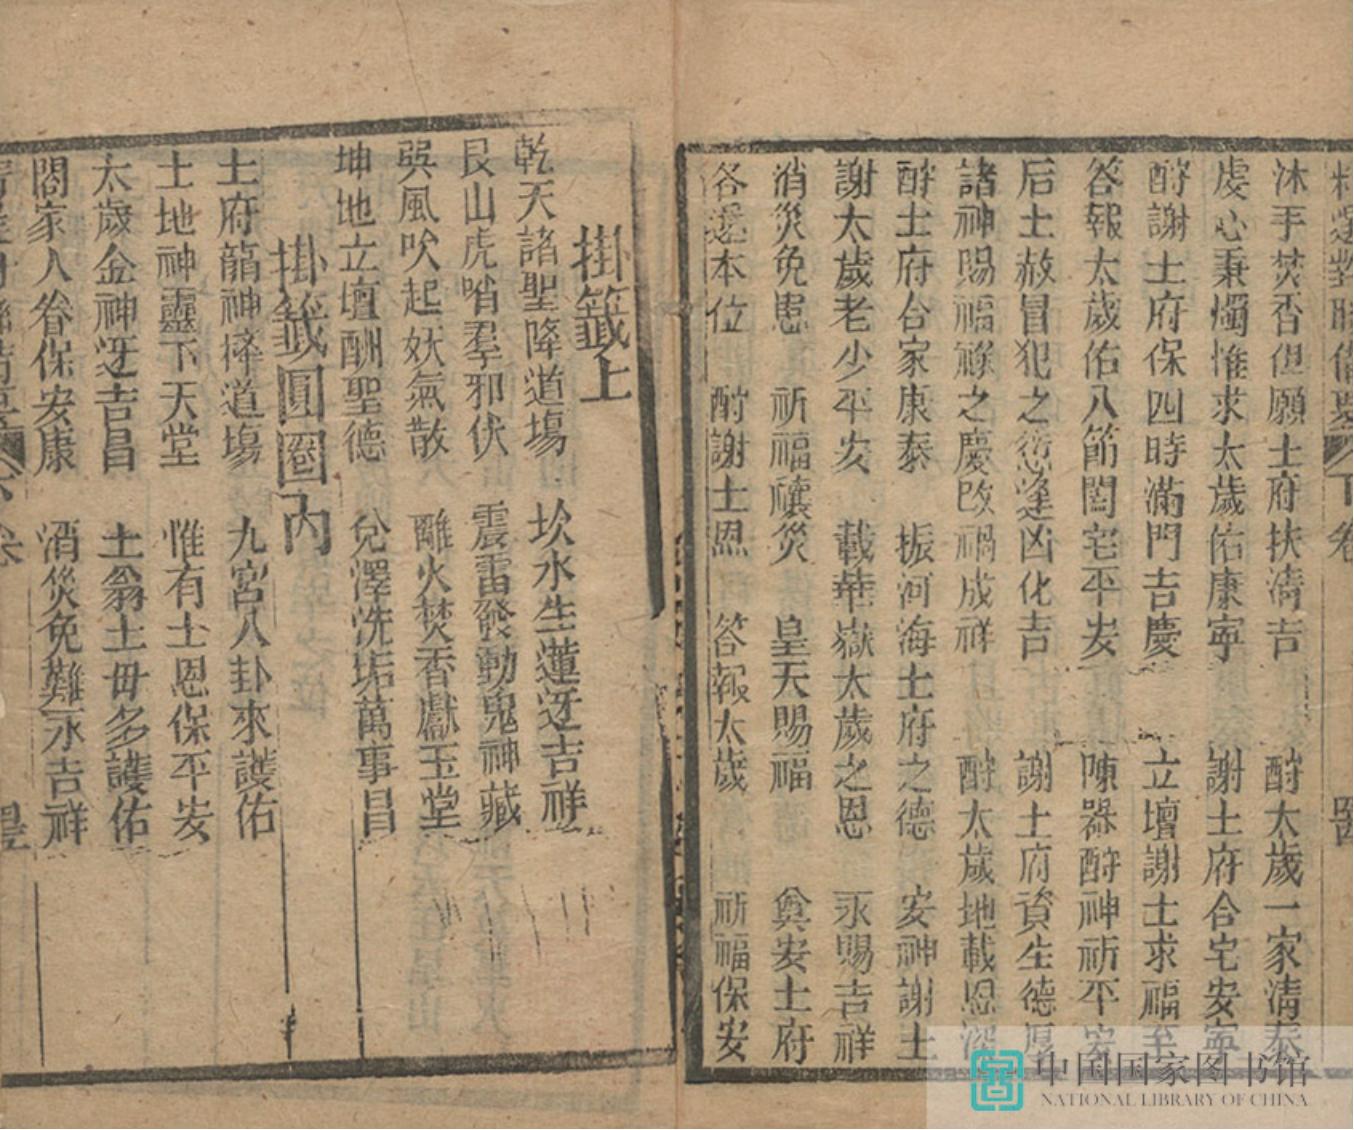 沐手焚香但願土府扶清吉　酧太歲一家清泰
虔心秉燭惟求太歲佑康寧　謝土府合宅安寧
酧謝土府保四時滿門吉慶　立壇謝土求福至
答報太歲佑八節闔宅平安　陳器酧神祈平安
后土赦冒犯之愆逢凶化吉　謝土府資生德厚
諸神賜福祿之慶改禍成祥　酧太歲地載恩深
酧土府合家康泰　振河海土府之德　安神謝土
謝太歲老少平安　載華嶽太歲之恩　永賜吉祥
消災免患　祈福禳災　皇天賜福　奠安土府
各還本位　酧謝土恩　答報太歲　祈福保安
掛籤上
乾天諸聖降道塲　坎水生蓮迓吉祥
艮山虎哨羣邪伏　震雷發動鬼神藏
巽風吹起妖氣散　離火焚香獻玉堂
坤地立壇酬聖德　兌澤洗垢萬事昌
掛籤圓圈內
土府龍神降道塲　九宮八卦來護佑
土地神靈下天堂　惟有土恩保平安
太歲金神迓吉昌　土翁土毋多護佑
閤家人眷保安康　消災免難永吉祥
中国国家图书馆
NATIONAL LIBRARY OF CHINA